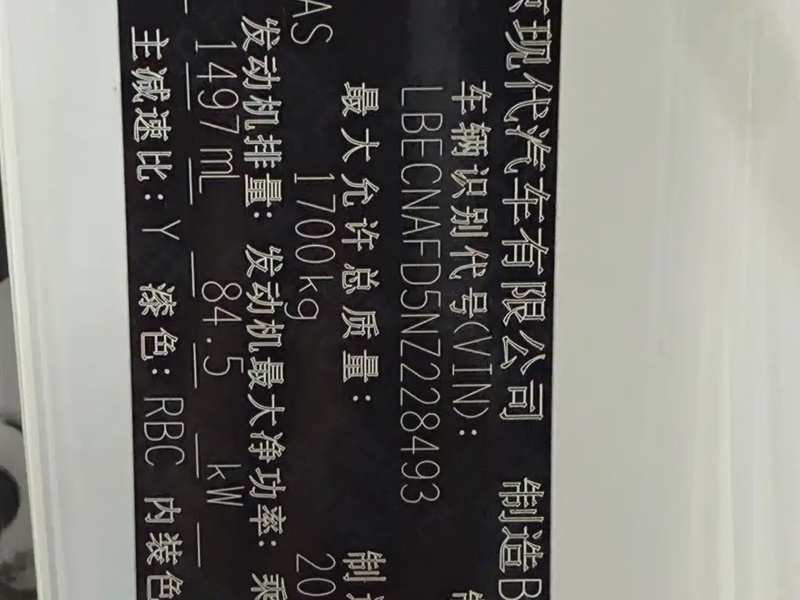 现代汽车有限公司 制造
车辆识别代号(VIN):
LBECNAFD5NZ228493
最大允许总质量: 制
1700kg 20
AS
发动机排量: 发动机最大净功率: 乘
1497mL 84.5 kW
主减速比: Y 漆色: RBC 内装色